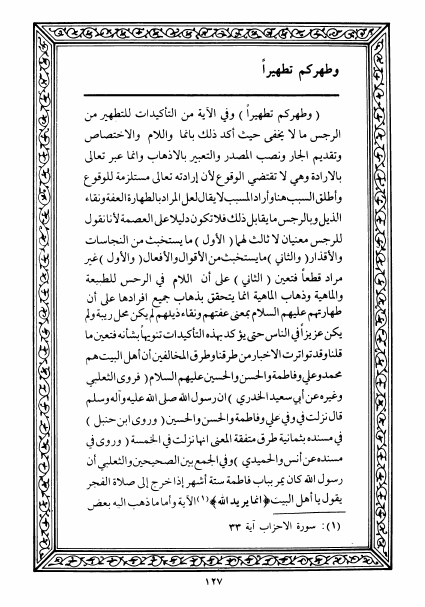 وطهركم تطهيراً
( وطهركم تطهيراً ) وفي الآية من التأكيدات للتطهير من
الرجس ما لا يخفى حيث أكد ذلك بانما واللام والاختصاص
وتقديم الجار ونصب المصدر والتعبير بالاذهاب وانما عبر تعالى
بالارادة وهي لا تقتضي الوقوع لأن إرادته تعالى مستلزمة للوقوع
وأطلق السبب هنا وأراد المسبب لا يقال لعل المراد بالطهارة العفة ونقاء
الذيل وبالرجس ما يقابل ذلك فلا تكون دليلا على العصمة لأنا نقول
للرجس معنيان لا ثالث لهما ( الأول ) ما يستخبث من النجاسات
والأقذار ( والثاني ) ما يستخبث من الأقوال والأفعال ( والأول ) غير
مراد قطعاً فتعين ( الثاني ) على أن اللام في الرجس للطبيعة
والماهية وذهاب الماهية انما يتحقق بذهاب جميع افرادها على أن
طهارتهم عليهم السلام بمعنى عفتهم ونقاء ذيلهم لم يكن محل ريبة ولم
يكن عزيزاً في الناس حتى يؤكد بهذه التأكيدات تنويهاً بشأنه فتعين ما
قلنا وقد تواترت الاخبار من طرقنا وطرق المخالفين أن أهل البيت هم
محمد وعلي وفاطمة والحسن والحسين عليهم السلام ( فروى الثعلبي
وغيره عن أبي سعيد الخدري ) ان رسول الله صلى الله عليه وآله وسلم
قال نزلت في وفي علي وفاطمة والحسن والحسين ( وروى ابن حنبل )
في مسنده بثمانية طرق متفقة المعنى انها نزلت في الخمسة ( وروى في
مسنده عن أنس والحميدي ) وفي الجمع بين الصحيحين والثعلبي أن
رسول الله كان يمر بباب فاطمة ستة أشهر إذا خرج إلى صلاة الفجر
يقول يا أهل البيت ﴿انما يريد الله﴾(١) الآية وأما ما ذهب اليه بعض
(١) : سورة الاحزاب آية ٣٣
١٢٧